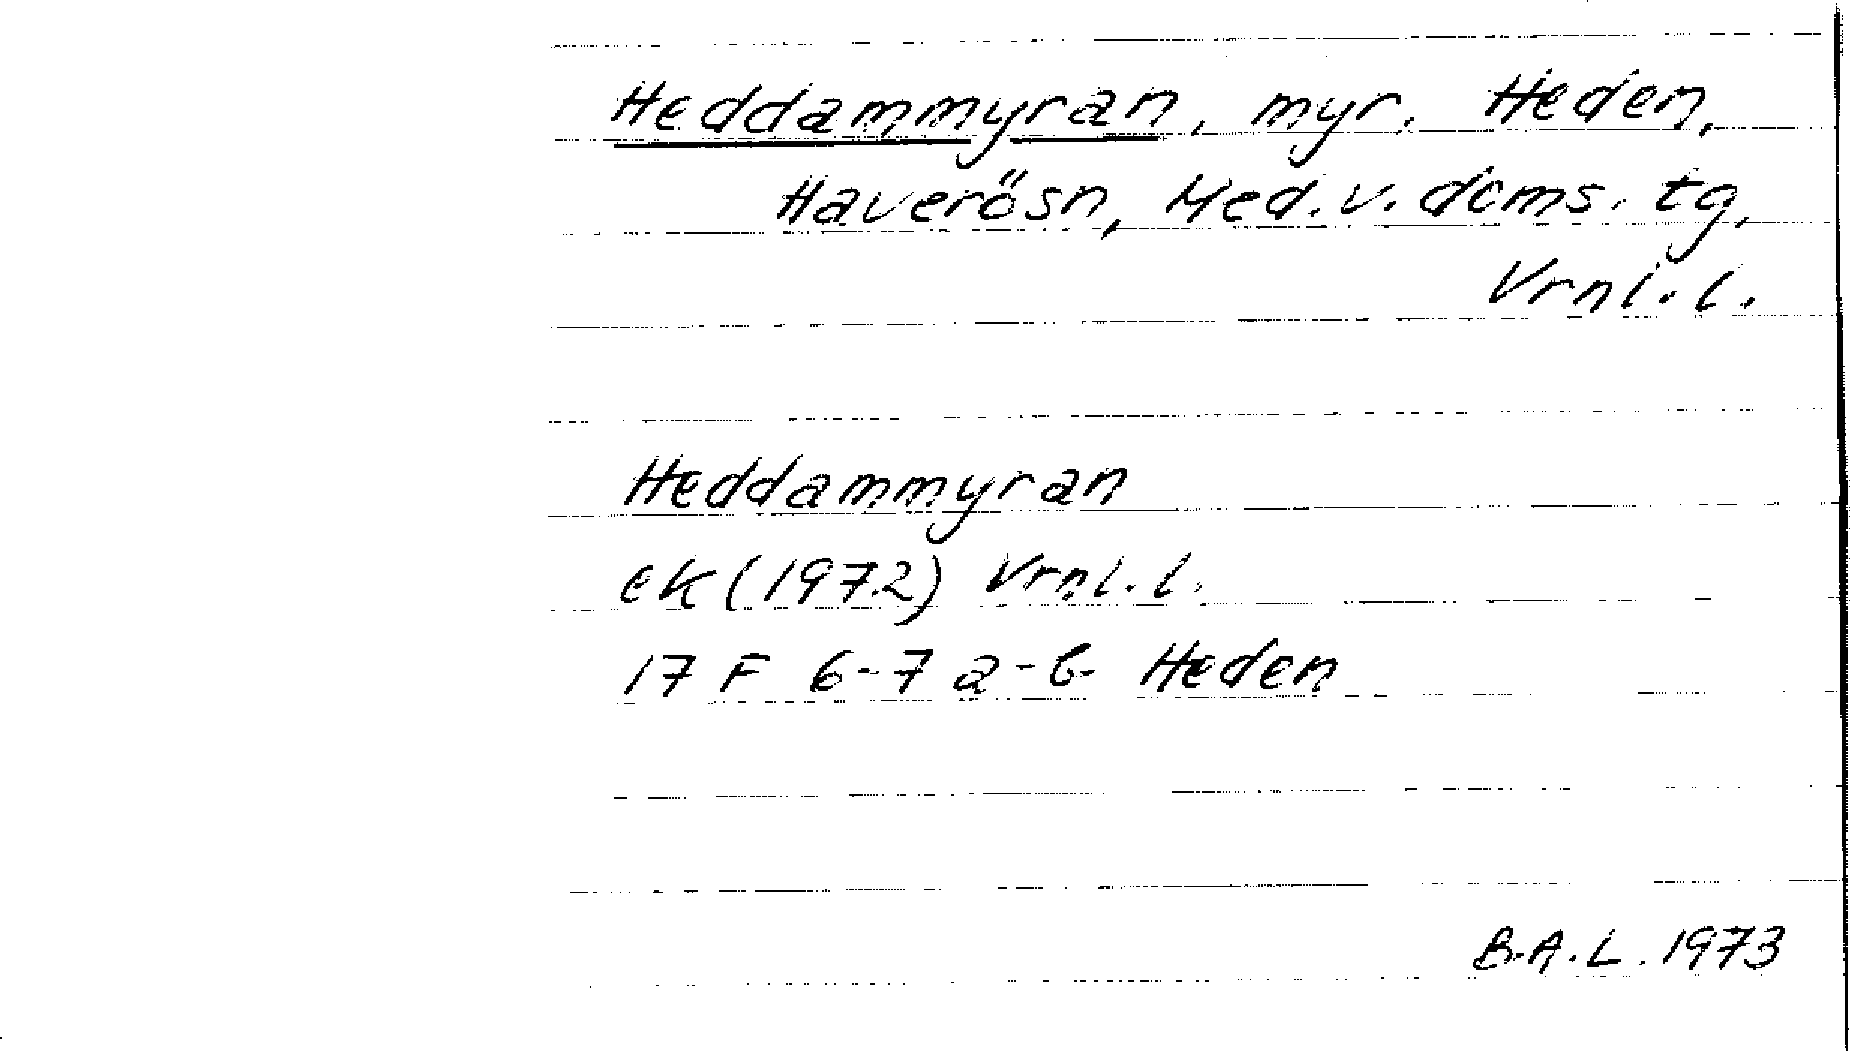 Heddammyran, myr. Heden,
Haverösn, Med. v. doms. tg,
Vrnl. l.
Heddammyran
ek (1972) Vrnl. l.
17 F 6-7 a-b Heden
B.A.L. 1973